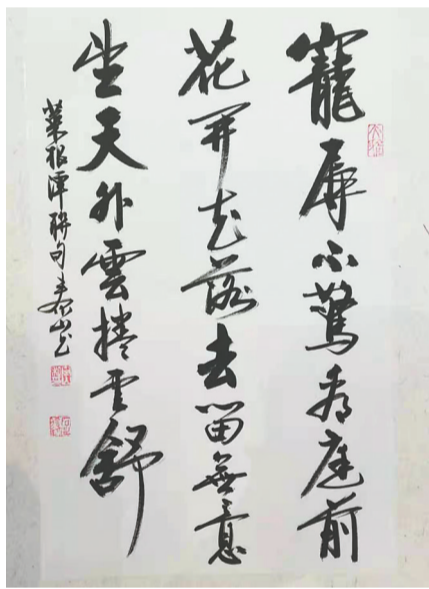 寵辱不驚看庭前
花開花落去留無意
望天外雲捲雲舒
菜根潭聯句